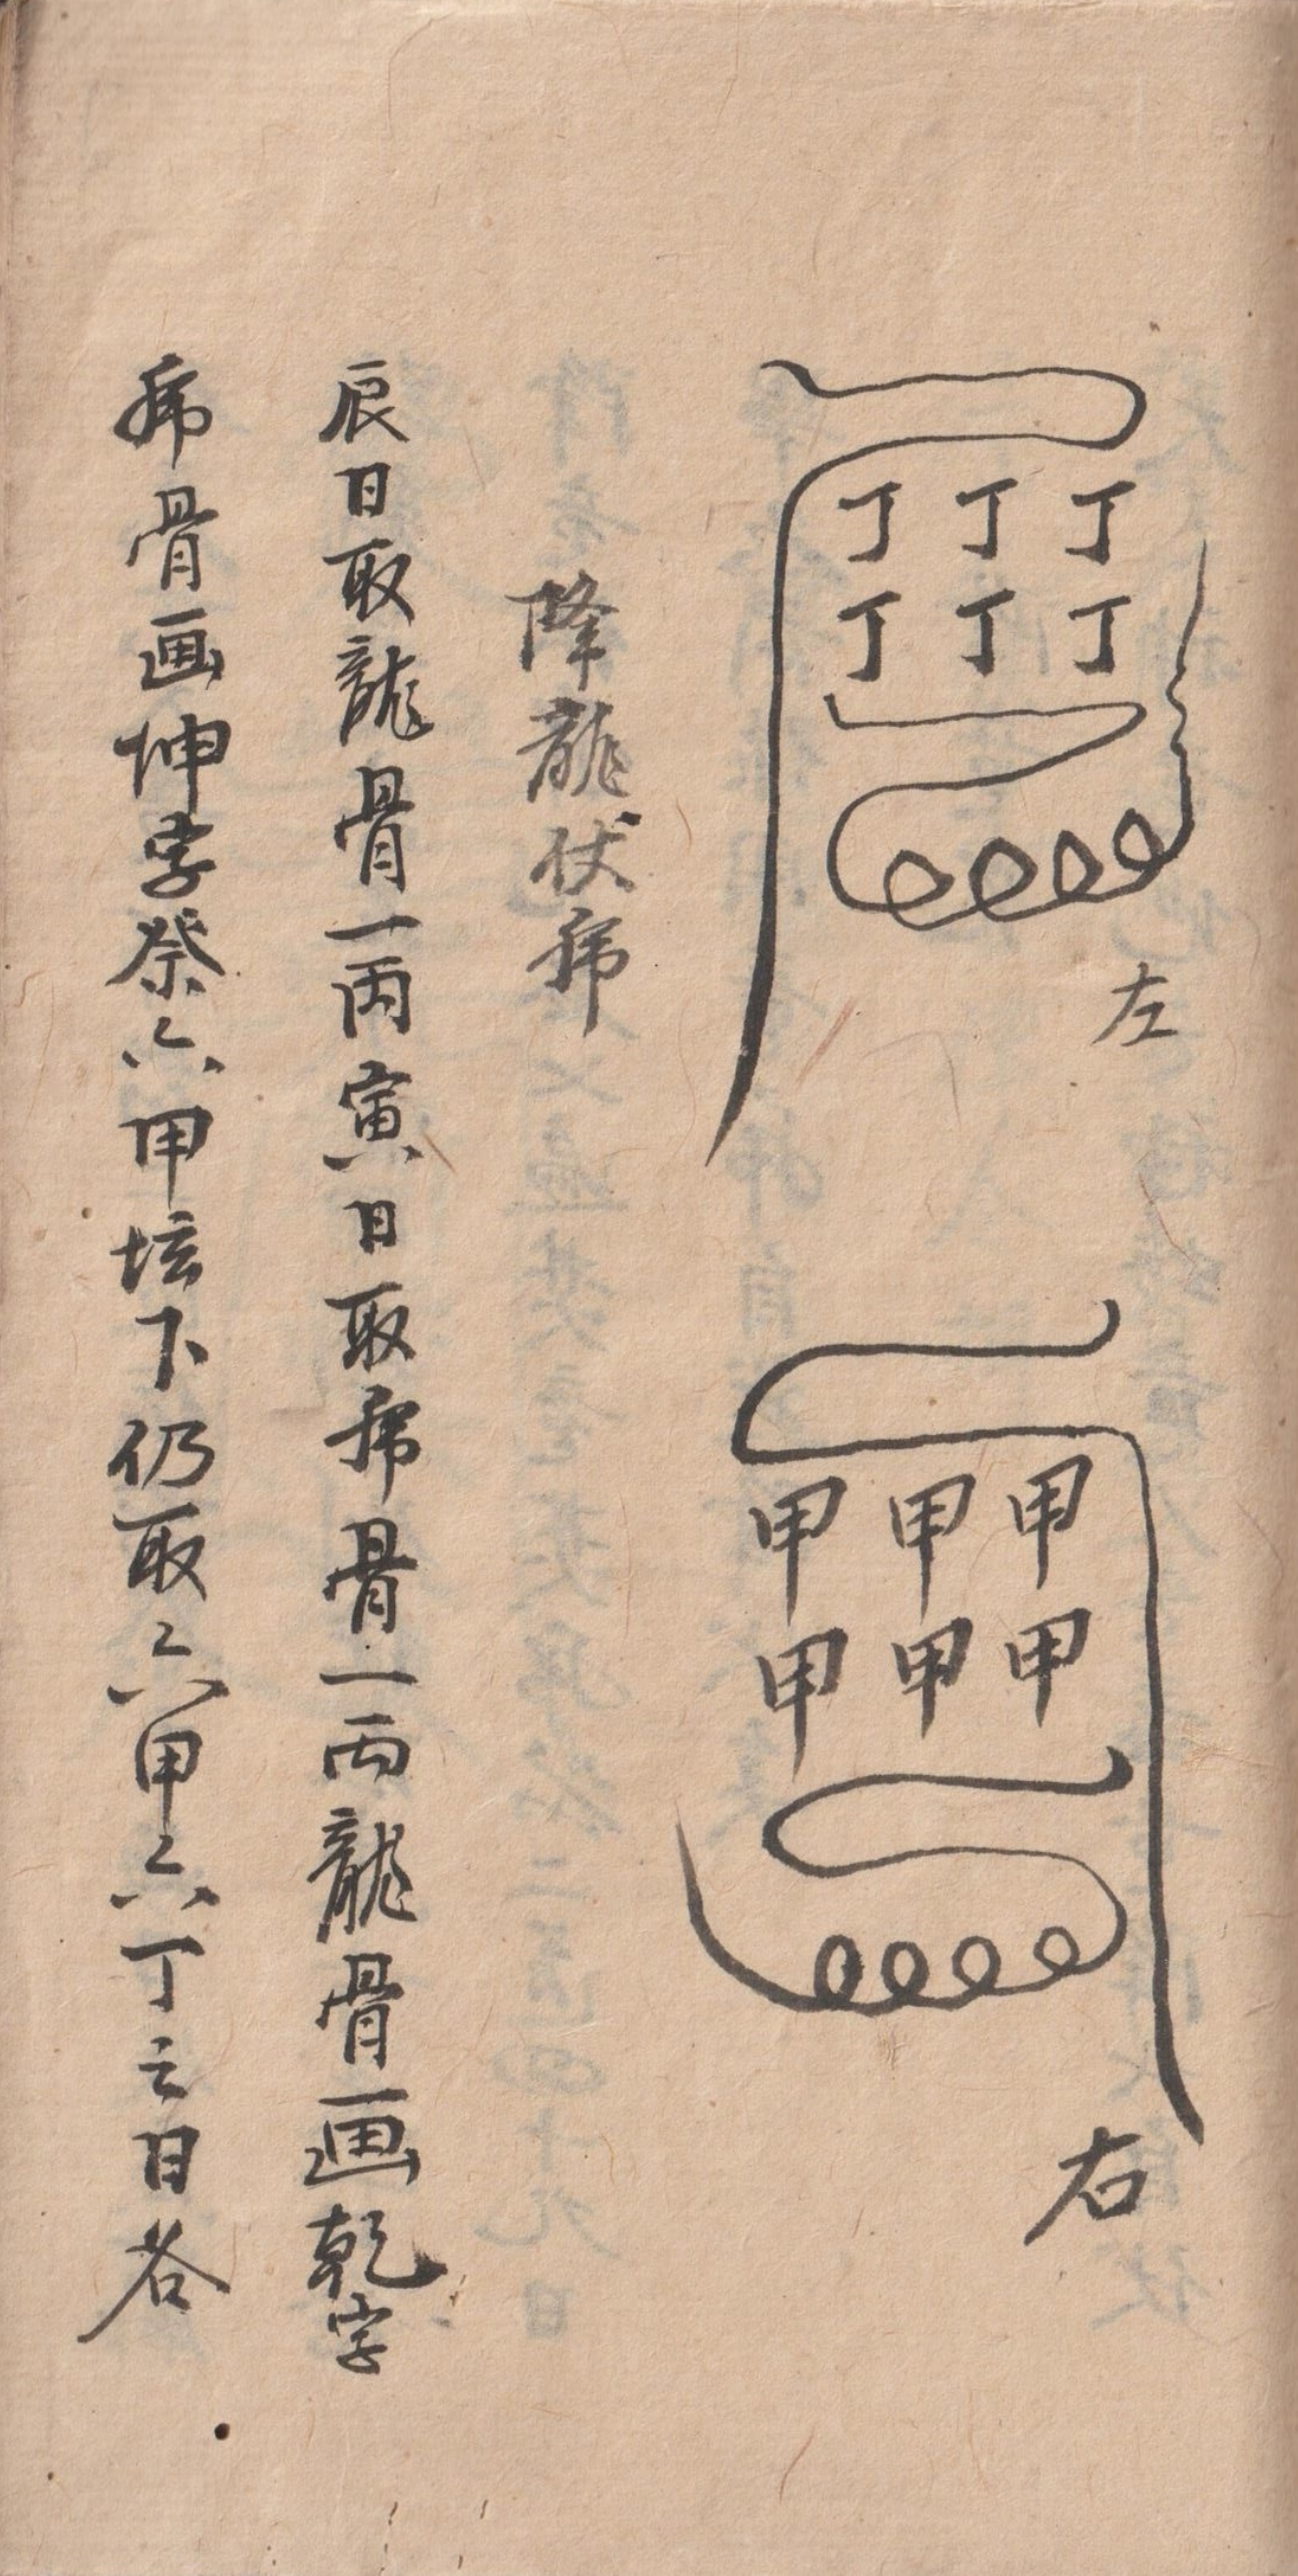 丁丁丁
丁丁丁
左
甲甲甲
甲甲甲
右
降龍伏虎
辰日取龍骨一两寅日取虎骨一两龍骨画乾字
虎骨画坤字祭六甲坛下仍取六甲六丁之日各